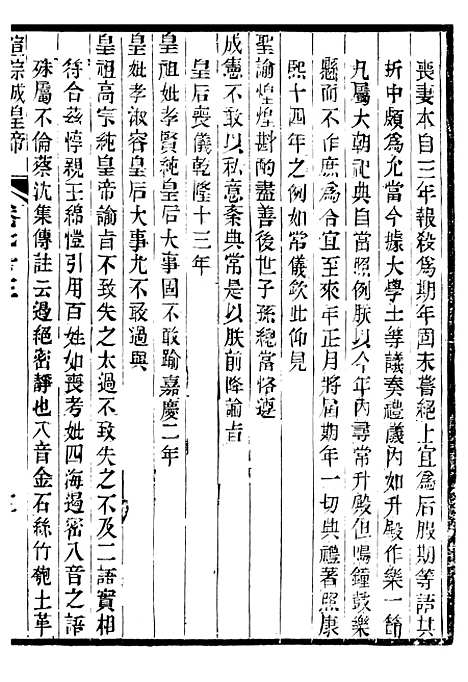 喪妻本自三年報殺爲期年固未嘗絕上宜爲后服期等語其
折中頗爲允當今據大學士等議奏禮儀內如升殿作樂一節
凡屬大朝祀典自當照例朕以今年內尋常升殿但鳴鐘鼓樂
懸而不作庶爲合宜至來年正月將屆期年一切典禮著照康
熙十四年之例如常儀欽此仰見
聖諭煌煌斟酌盡善後世子孫總當恪遵
成憲不敢以私意紊典常是以朕前降諭旨
皇后喪儀乾隆十三年
皇祖妣孝賢純皇后大事固不敢踰嘉慶二年
皇妣孝淑睿皇后大事尤不敢過與
皇祖高宗純皇帝諭旨不致失之太過不致失之不及二語實相
符合茲惇親王綿愷引用百姓如喪考妣四海遏密八音之語
殊屬不倫蔡沈集傳註云遏絕密靜也八音金石絲竹匏土革
宣宗成皇帝 卷七十三